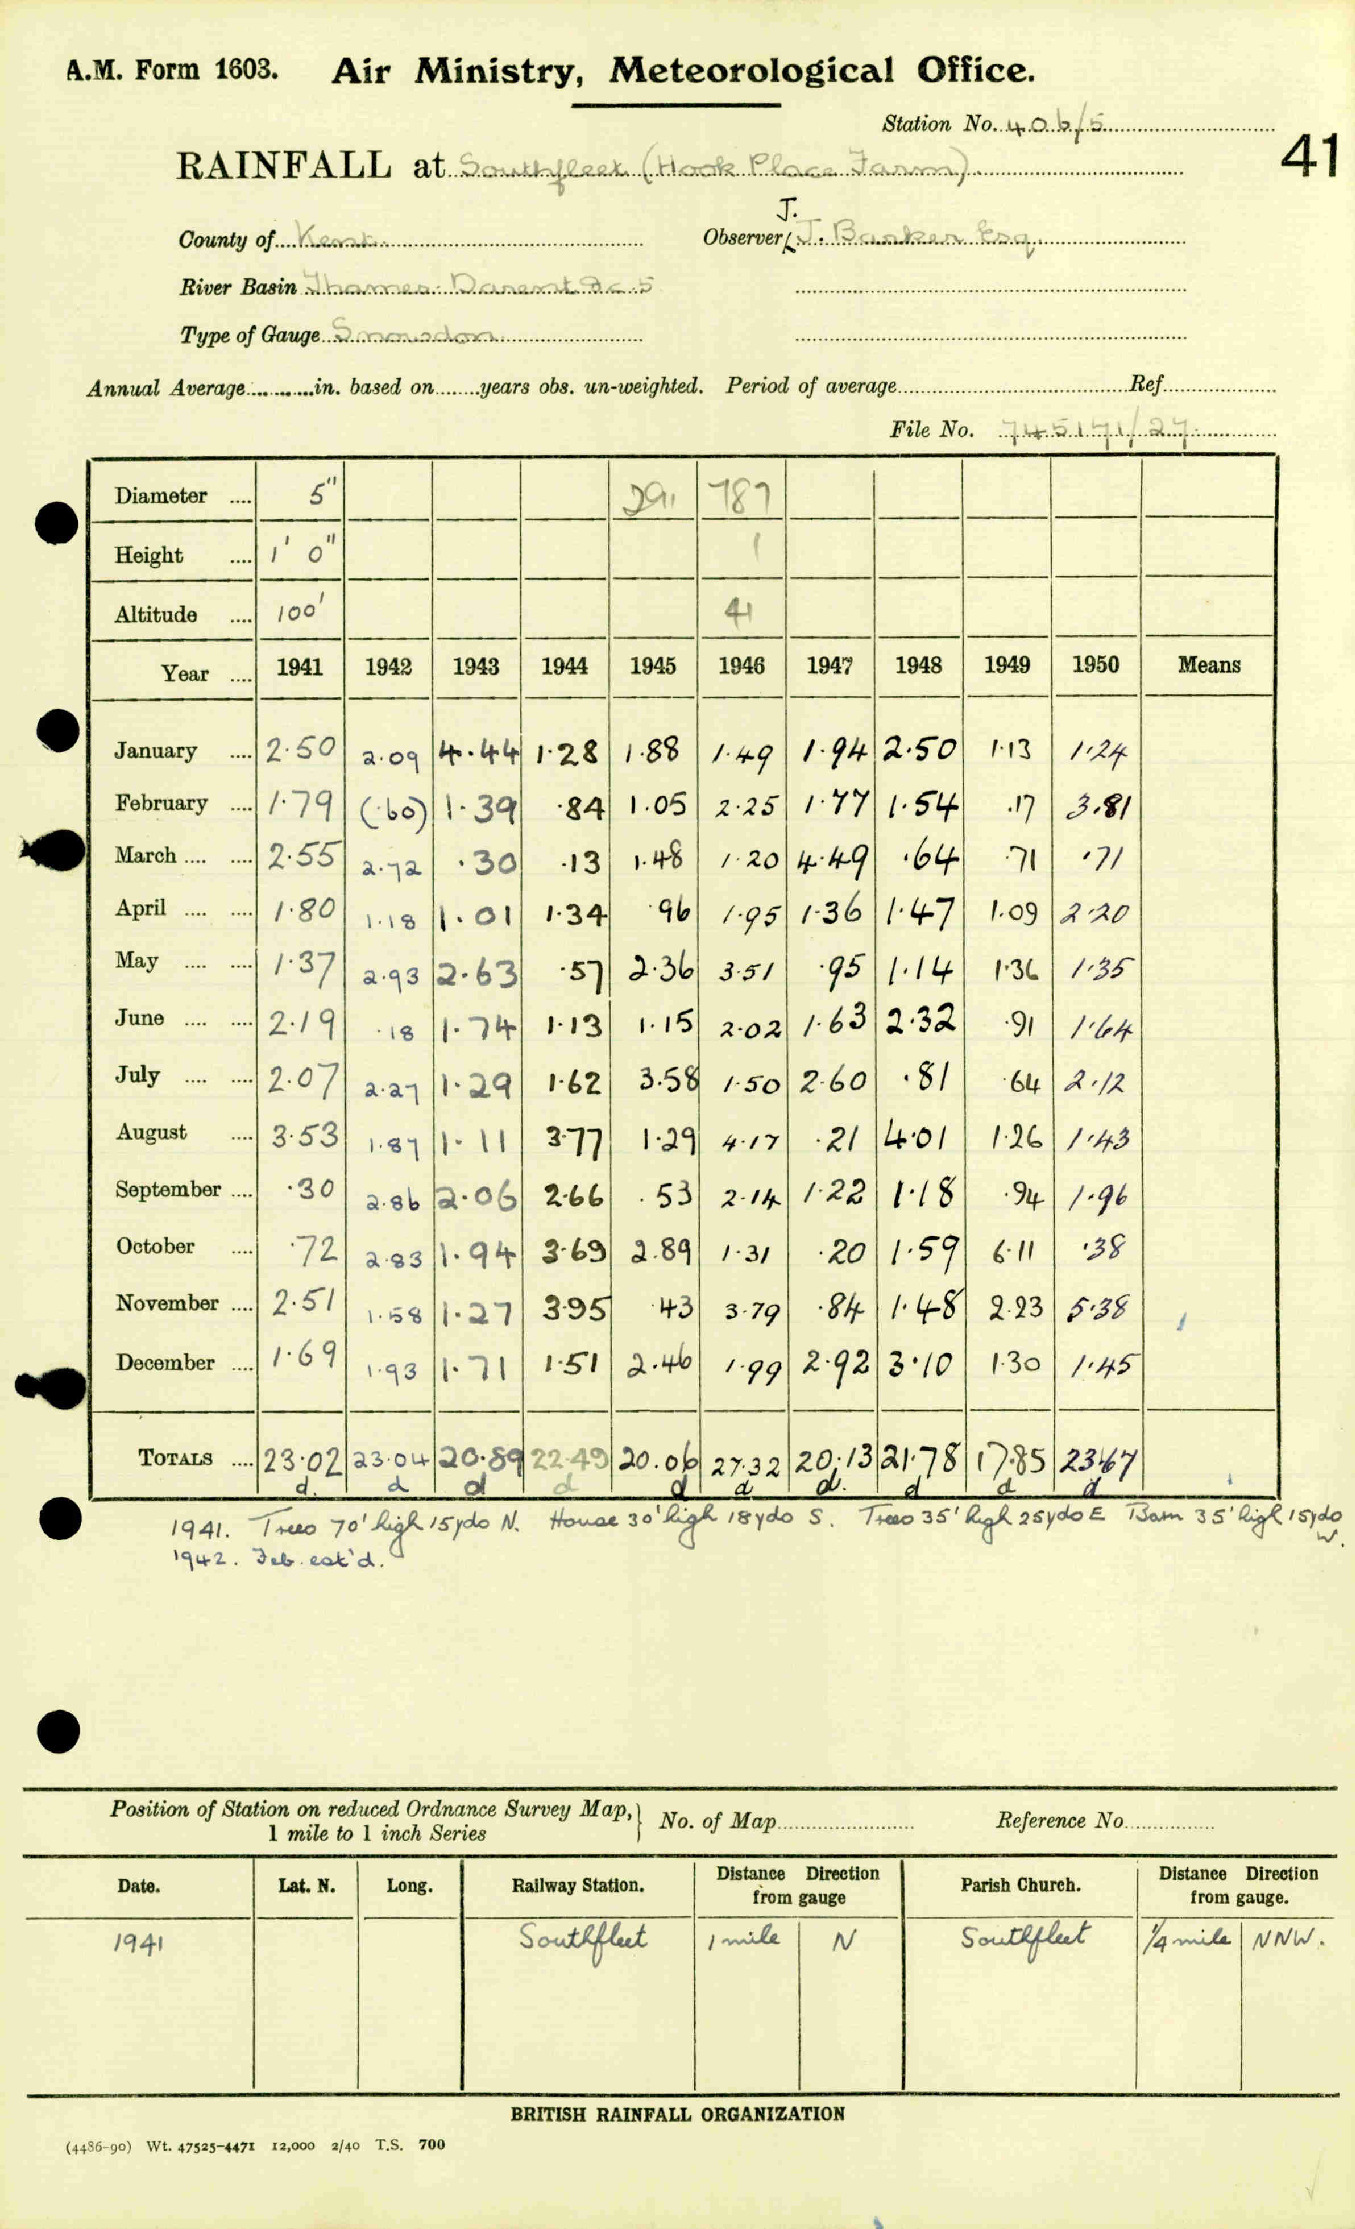 A.M. Form 1603. Air Ministry, Meteorological Office.
Station No. 406/5
41
RAINFALL at Southfleet (Hook Place Farm)
J.
County of Kent. Observer J. Barker Esq.
River Basin Thames. Darent &c. 5
Type of Gauge Snowdon
Annual Average in. based on years obs. un-weighted. Period of average Ref.
File No. 745171/27
Diameter .... 5" 291 787
Height .... 1' 0" 1
Altitude .... 100' 41
Year .... 1941 1942 1943 1944 1945 1946 1947 1948 1949 1950 Means
January .... 2.50 2.09 4.44 1.28 1.88 1.49 1.94 2.50 1.13 1.24
February .... 1.79 (.60) 1.39 .84 1.05 2.25 1.77 1.54 .17 3.81
March .... .... 2.55 2.72 .30 .13 1.48 1.20 4.49 .64 .71 .71
April .... .... 1.80 1.18 1.01 1.34 .96 1.95 1.36 1.47 1.09 2.20
May .... .... 1.37 2.93 2.63 .57 2.36 3.51 .95 1.14 1.36 1.35
June .... .... 2.19 .18 1.74 1.13 1.15 2.02 1.63 2.32 .91 1.64
July .... .... 2.07 2.27 1.29 1.62 3.58 1.50 2.60 .81 .64 2.12
August .... 3.53 1.87 1.11 3.77 1.29 4.17 .21 4.01 1.26 1.43
September .... .30 2.86 2.06 2.66 .53 2.14 1.22 1.18 .94 1.96
October .... .72 2.83 1.94 3.69 2.89 1.31 .20 1.59 6.11 .38
November .... 2.51 1.58 1.27 3.95 .43 3.79 .84 1.48 2.23 5.38
December .... 1.69 1.93 1.71 1.51 2.46 1.99 2.92 3.10 1.30 1.45
TOTALS .... 23.02 23.04 20.89 22.49 20.06 27.32 20.13 21.78 17.85 23.67
d. d d d d d d. d d d
1941. Trees 70' high 15yds N. House 30' high 18yds S. Trees 35' high 25yds E Barn 35' high 15yds
W.
1942. Feb. est'd.
Position of Station on reduced Ordnance Survey Map, } No. of Map Reference No.
1 mile to 1 inch Series
Date. Lat. N. Long. Railway Station. Distance Direction from gauge Parish Church. Distance Direction from gauge.
1941 Southfleet 1 mile N Southfleet 1/4 mile NNW.
BRITISH RAINFALL ORGANIZATION
(4486-90) Wt. 47525-4471 12,000 2/40 T.S. 700